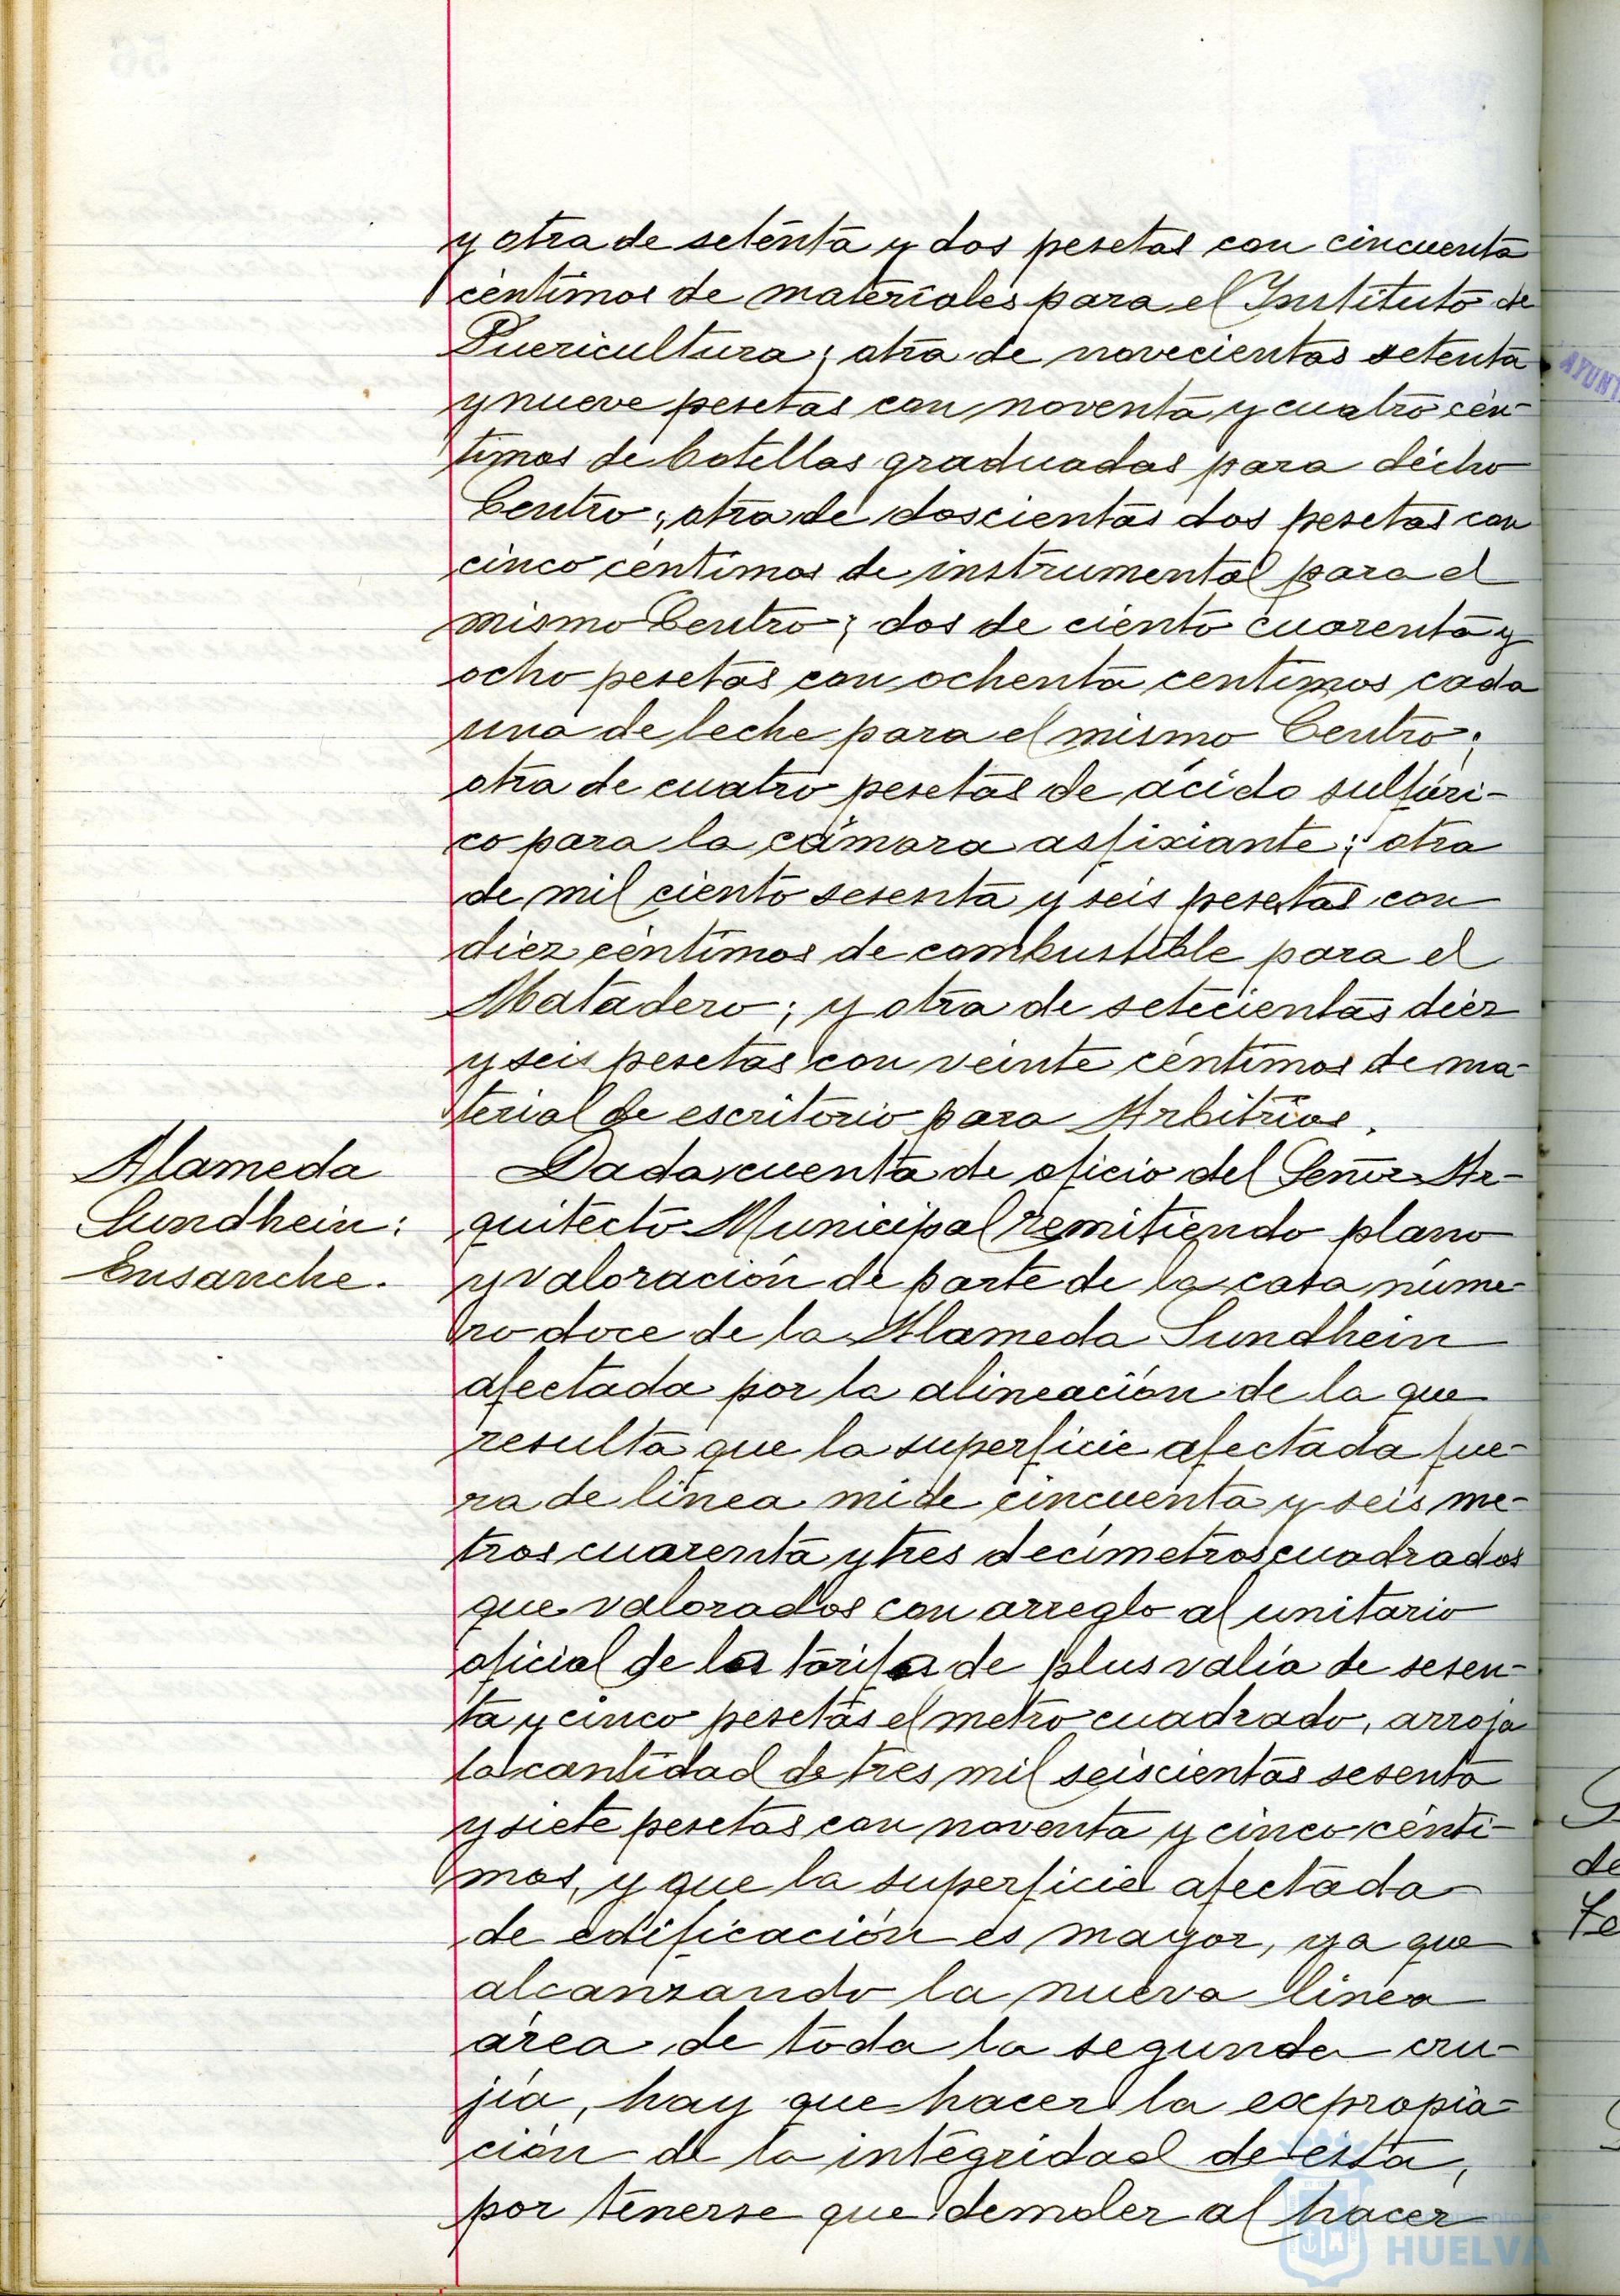 y otra de setenta y dos pesetas con cincuenta
céntimos de materiales para el Instituto de
Puericultura; otra de novecientas setenta
y nueve pesetas con noventa y cuatro cén-
timos de botellas graduadas para dicho
Centro; otra de doscientas dos pesetas con
cinco céntimos de instrumental para el
mismo Centro; dos de ciento cuarenta y
ocho pesetas con ochenta centimos cada
una de leche para el mismo Centro;
otra de cuatro pesetas de ácido sulfúri-
co para la cámara asfixiante; otra
de mil ciento sesenta y seis pesetas con
diez céntimos de combustible para el
Matadero; y otra de setecientas diez
y seis pesetas con veinte céntimos de ma-
terial de escritorio para Arbitrios.
Alameda
Sundhein:
Ensanche.
Dada cuenta de oficio del Señor Ar-
quitecto Municipal remitiendo plano
y valoración de parte de la casa núme-
ro doce de la Alameda Sundhein
afectada por la alineación de la que
resulta que la superficie afectada fue-
ra de línea mide cincuenta y seis me-
tros cuarenta y tres decímetros cuadrados
que valorados con arreglo al unitario
oficial de las tarifas de plus valía de sesen-
ta y cinco pesetas el metro cuadrado, arroja
la cantidad de tres mil seiscientas sesenta
y siete pesetas con noventa y cinco cénti-
mos, y que la superficie afectada
de edificación es mayor, ya que
alcanzando la nueva línea
área de toda la segunda cru-
jía, hay que hacer la expropia-
ción de la integridad de ésta,
por tenerse que demoler al hacer
AYUNT
de
HUELVA